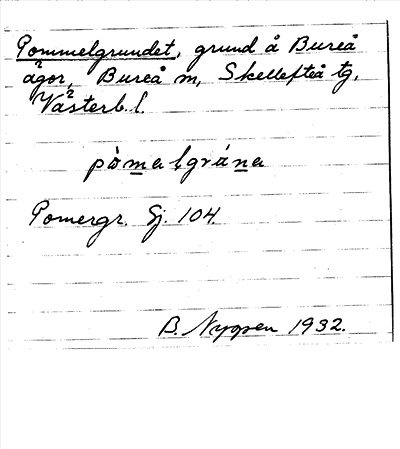 Pommelgrundet, grund å Bureå
ägor, Bureå m, Skellefteå tg,
Västerb. l.
pòmalgrúna
Pomergr. Sj. 104
B. Nygren 1932.